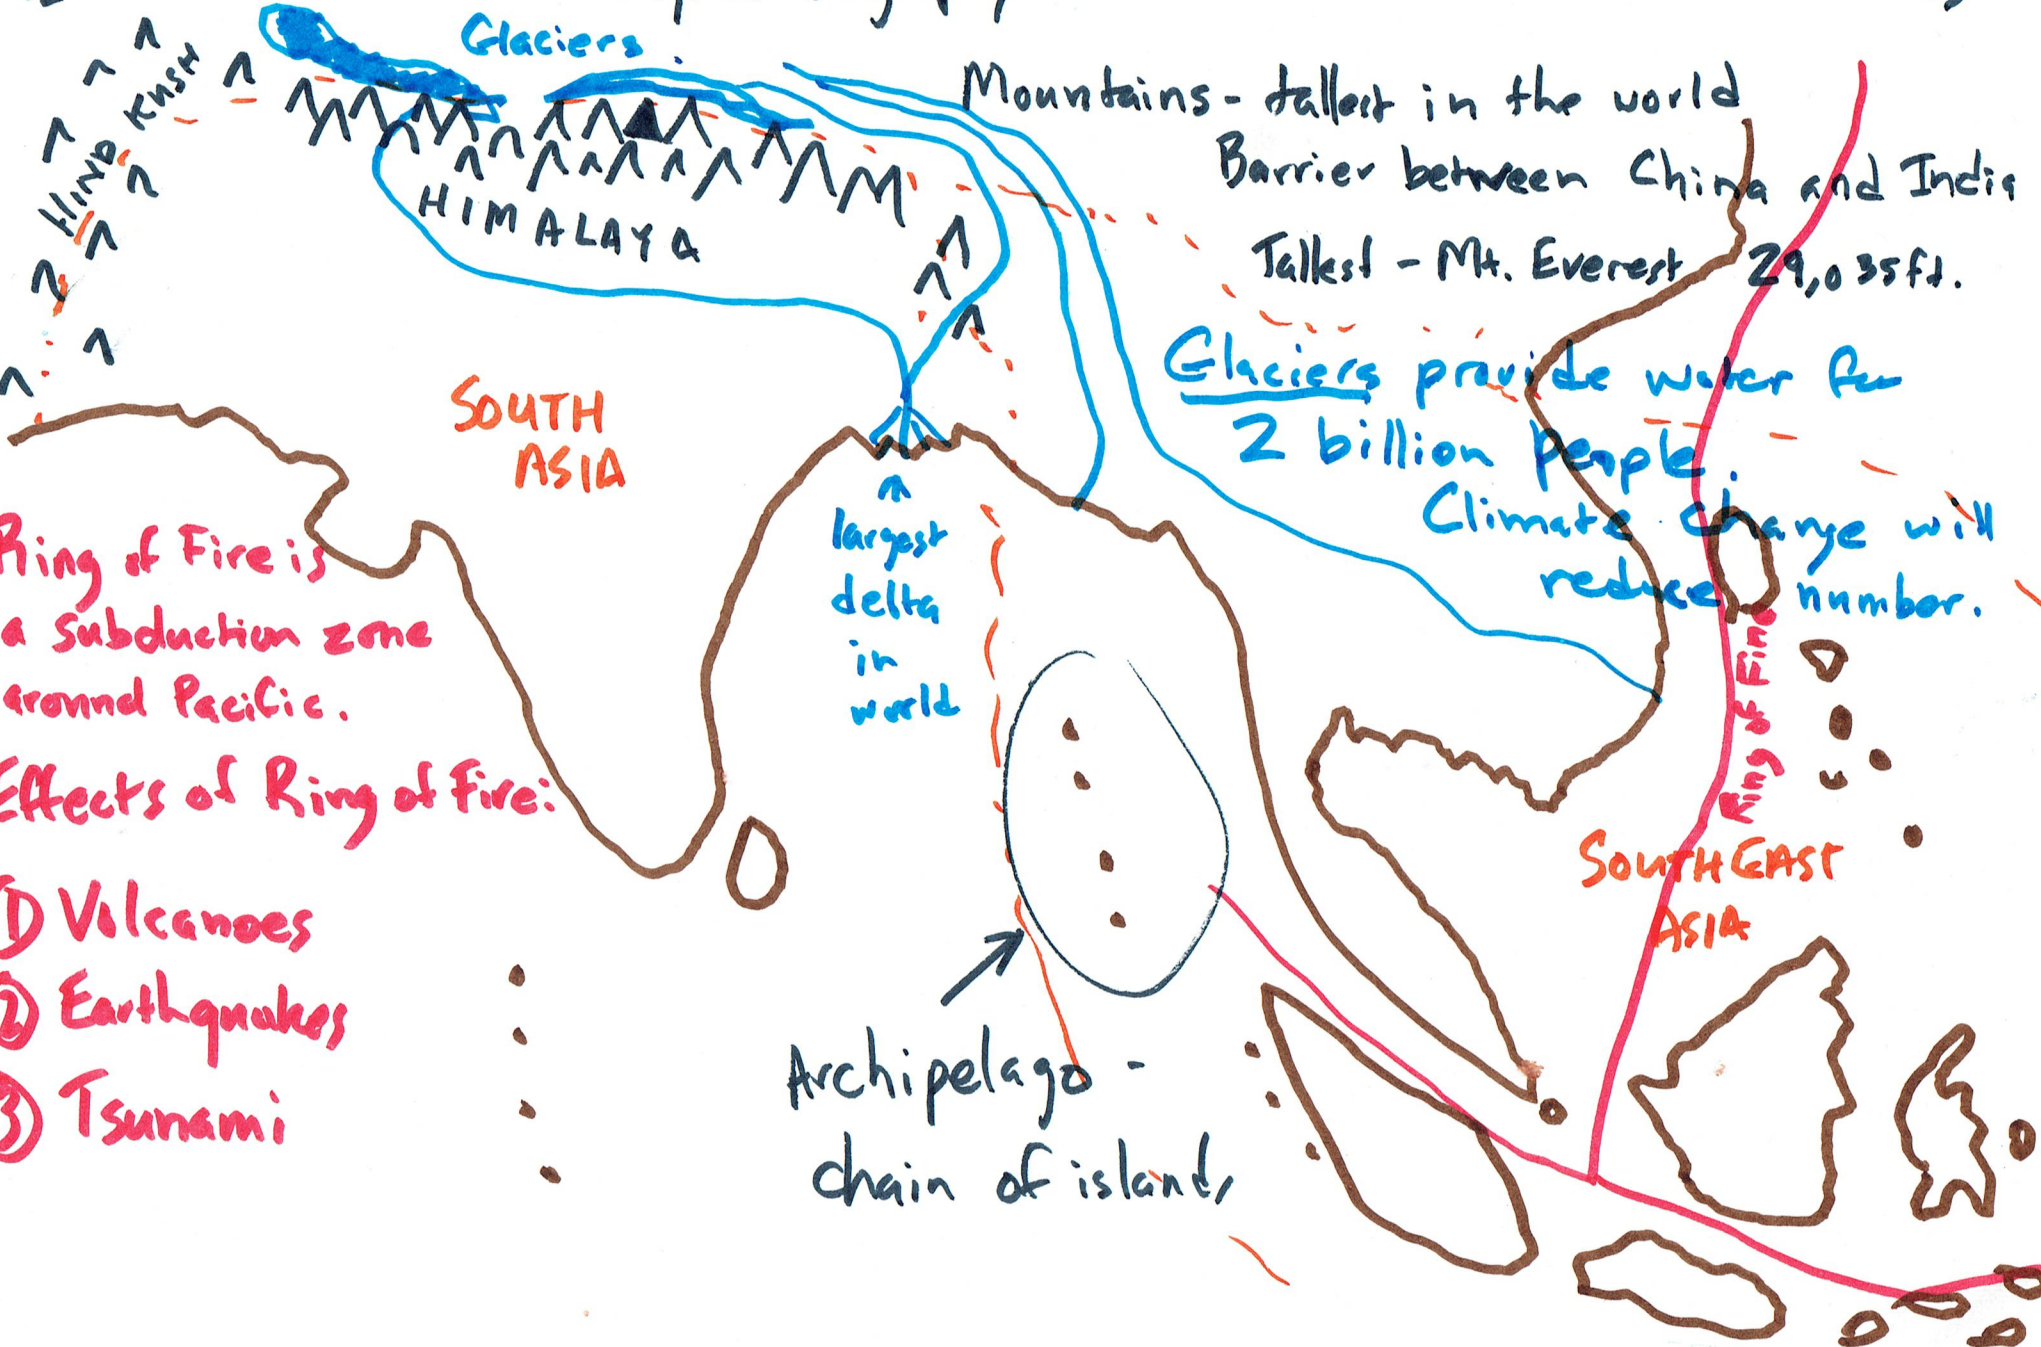 Glaciers
HINDU KUSH
HIMALAYA
Mountains - tallest in the world
Barrier between China and India
Tallest - Mt. Everest 29,035 ft.
Glaciers provide water for
2 billion people.
Climate change will
reduce number.
SOUTH
ASIA
largest
delta
in
world
Ring of Fire is
a subduction zone
around Pacific.
Effects of Ring of Fire:
① Volcanoes
② Earthquakes
③ Tsunami
Ring of Fire
SOUTHEAST
ASIA
Archipelago -
chain of islands